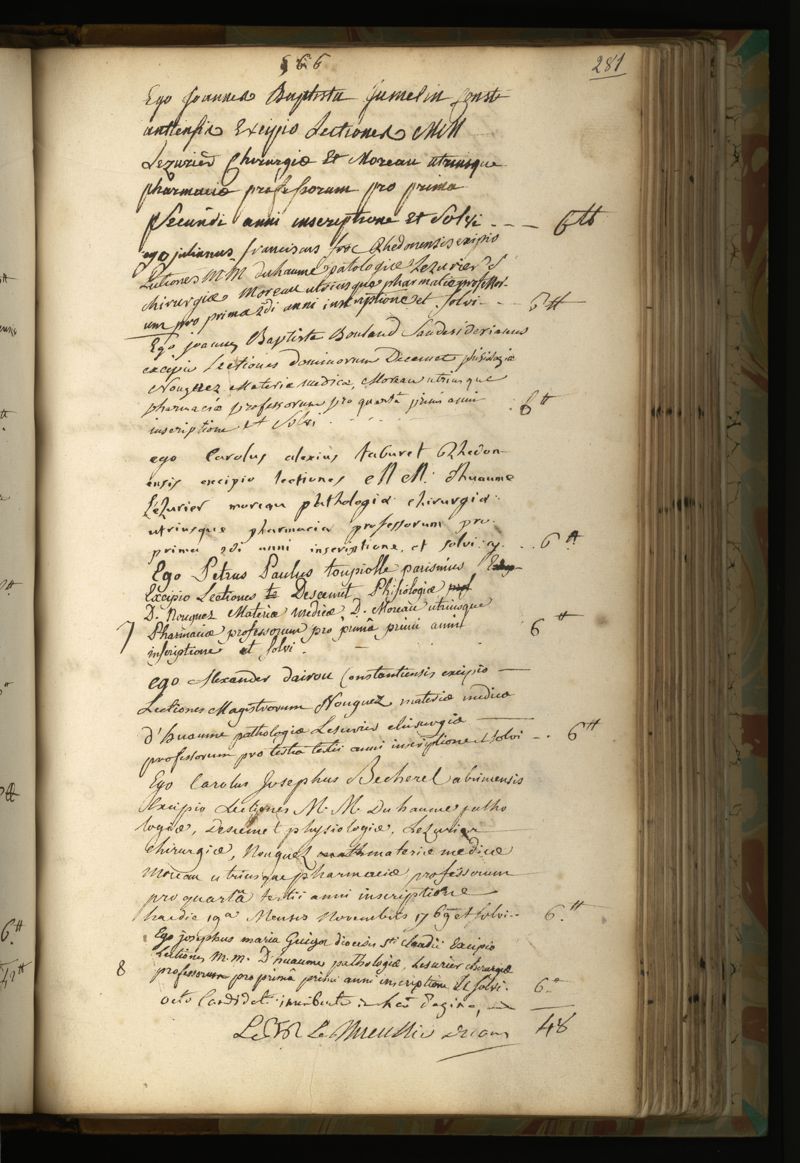 566
281
Ego Joannes Baptista Jumelin Const
antiensis Excipio Lectiones MM
Lezurier Chirurgiæ Et Moreau utriusque
pharmaciæ professorum pro prima
secundi anni inscriptione Et Solvi --- 6tt
ego julianus franciscus Rhedonensis excipio
Lectiones M.M. duhaume patologiæ Lezurier
chirurgiæ Moreau utriusque pharmaciæ professor-
um pro prima 2di anni inscriptione et solvi --- 6tt
Ego joannes Baptista Bouland Sandesiderianus
excipio Lectiones dominorum Descemet phisiologiæ
Nouguez Materiæ medicæ, Moreau utriusque
pharmaciæ professorum pro quarta primi anni
inscriptione et Solvi 6tt
ego Carolus alexius taburet Rhedon-
ensis excipio lectiones MM. d'huaume
Lezurier moreau pathologiæ chirurgiæ
utriusque pharmaciæ professorum pro
prima 2di anni inscriptione. et solvi 6tt
Ego Petrus Paulus toupiolle parisinus
Excipio Lectiones Descemet Phisiologiæ
D. Nouguez Materiæ medicæ D. Moreau utriusque
7 Pharmaciæ professorum pro primâ primi anni 6tt
inscriptione et solvi.
ego Alexander dairou Constantiensis excipio
Lectiones Magistrorum Nouguez materiæ medicæ
d'huaume pathologiæ Lesurier chirurgiæ
professorum pro tertia tertii anni inscriptione et solvi -. 6tt
Ego Carolus Josephus Becherel abrincensis
Excipio Lectiones M. M. Du haume patho
logiæ, Descemet physiologiæ, Lezurier
chirurgiæ, Nouguez materiæ medicæ
Moreau utriusque pharmaciæ professorum
pro quartâ tertii anni inscriptione
hac die 19a Mensis Novembris 1769 et solvi 6.tt
Ego josephus maria Guigon diocesis sti claudii Excipio
Lectiones M.m. D'huaume pathologiæ, Lesurier chirurgiæ
8 professorum pro primâ primi anni inscriptione Et Solvi. 6.
octo Candidati inscripti in hâc Paginâ,
Le Thieullier decanus 48